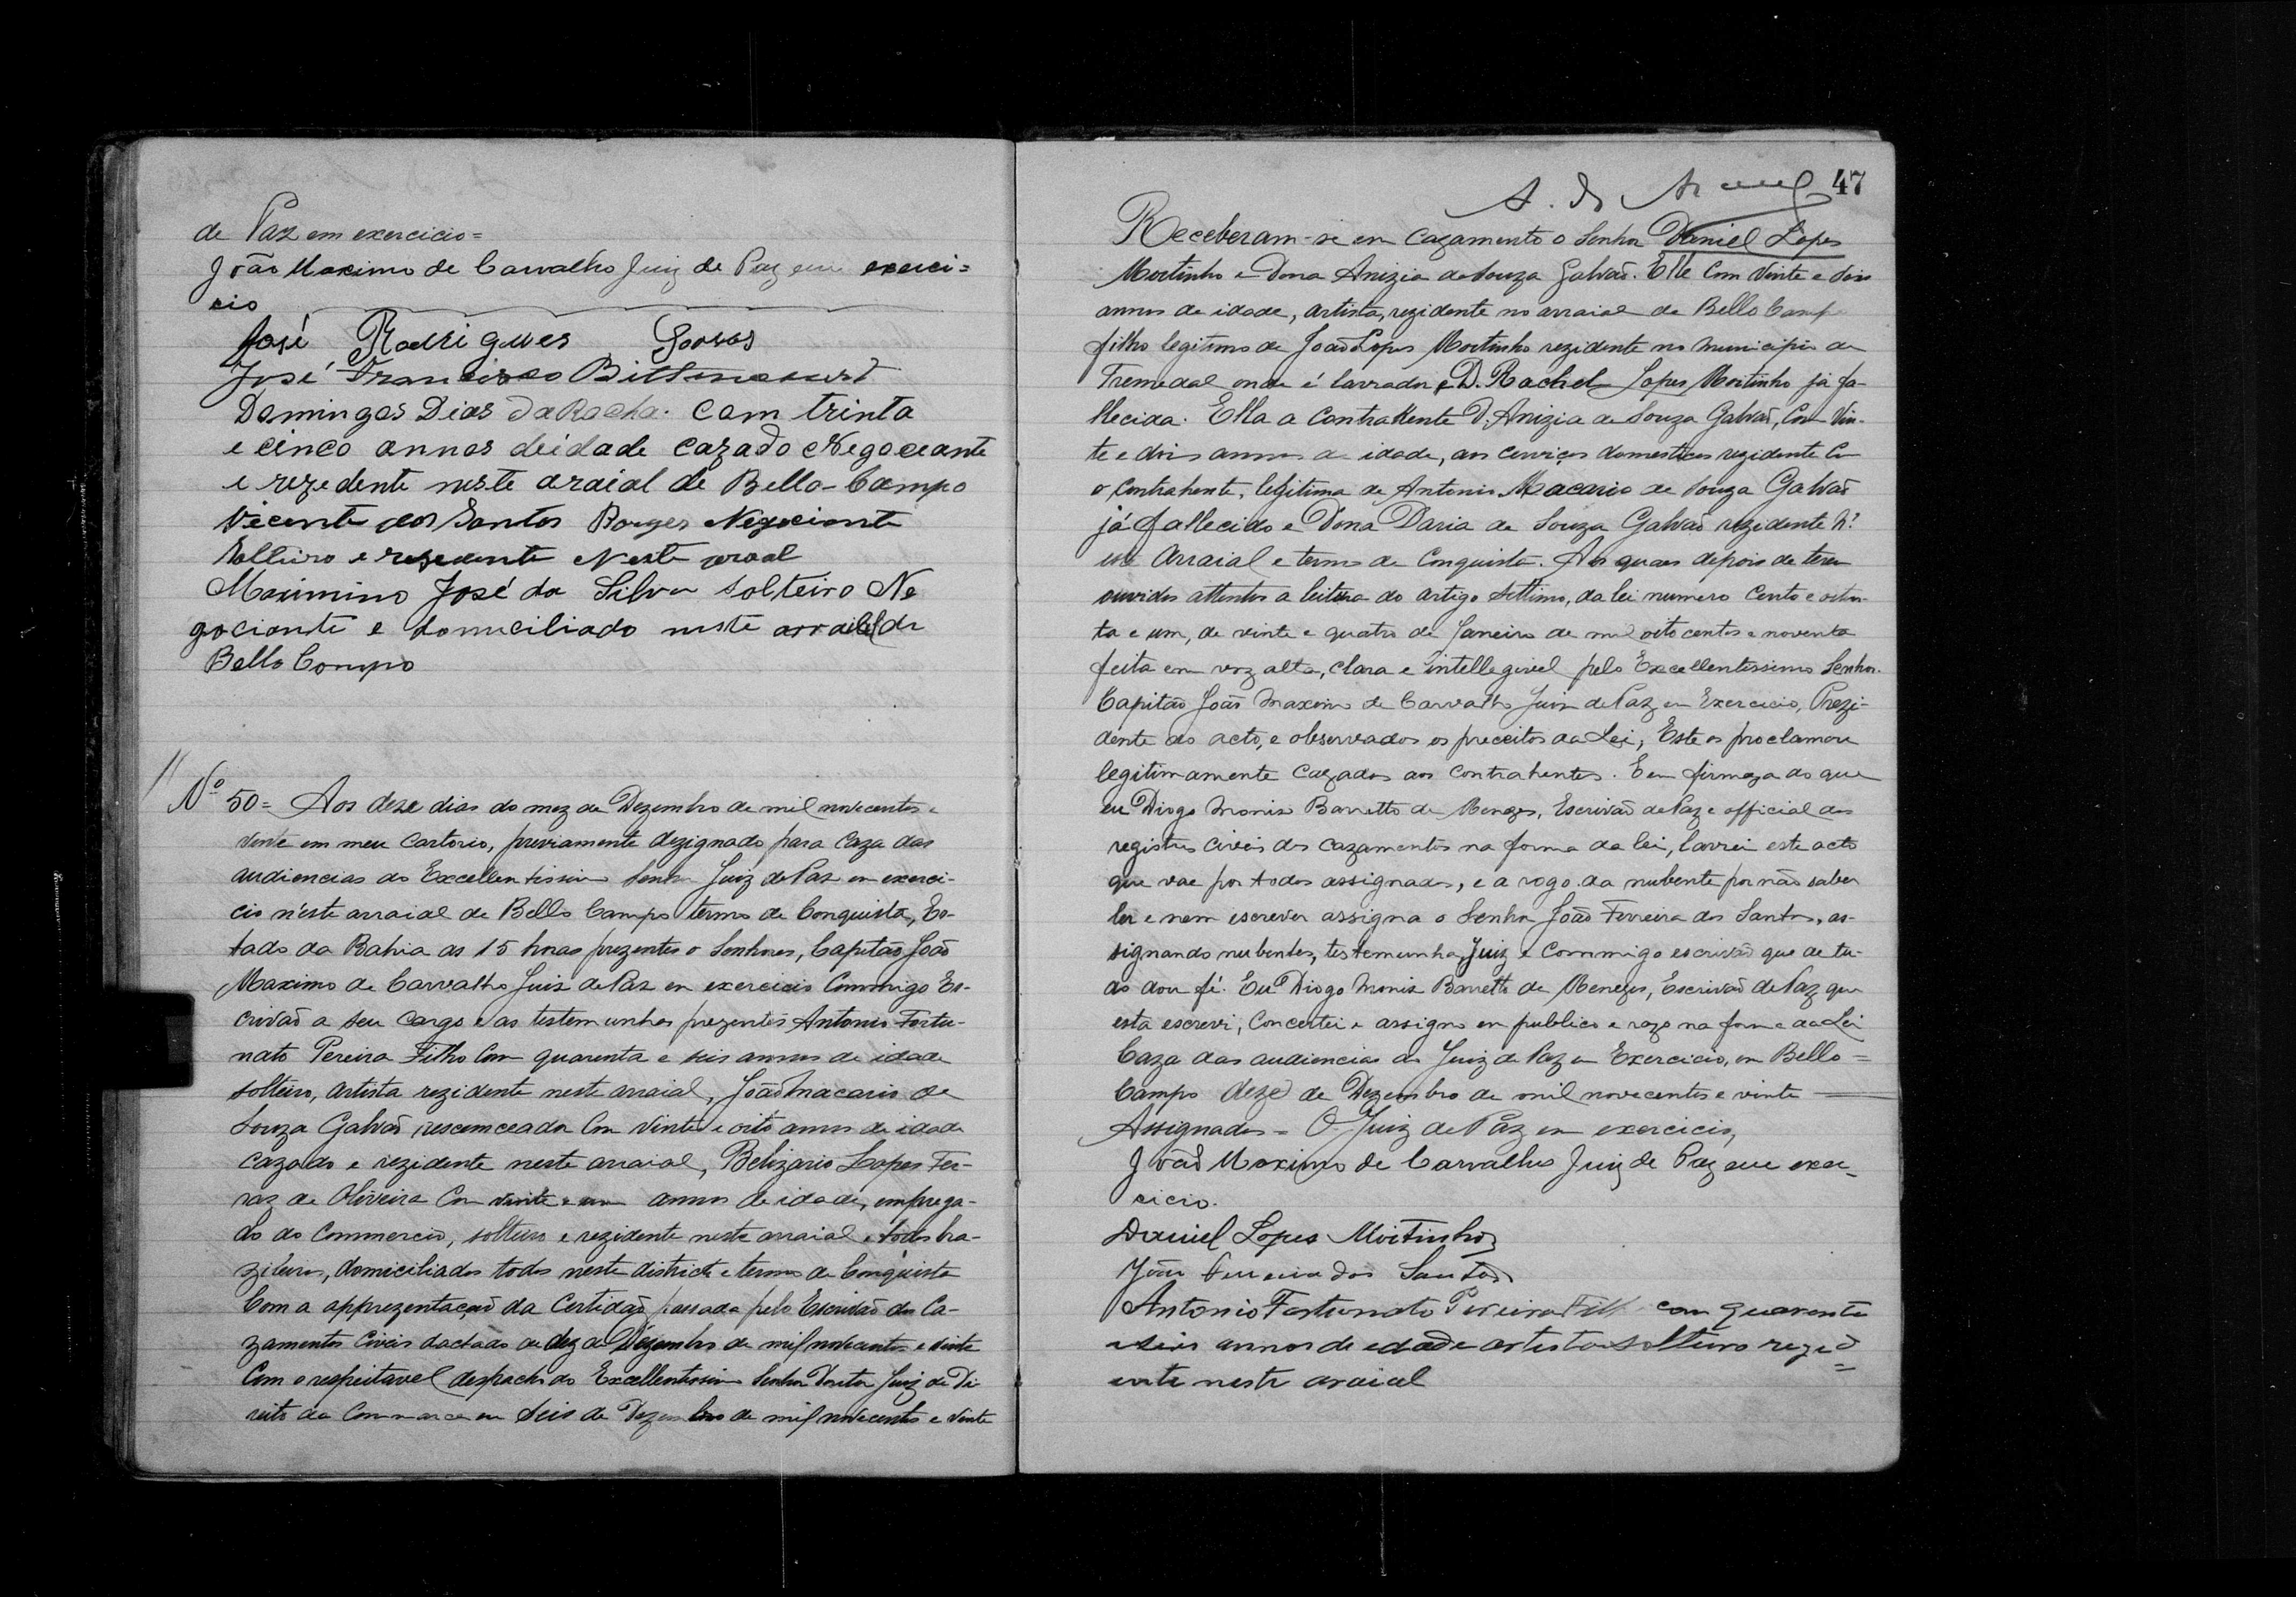 de Paz em exercicio=
João Maximo de Carvalho Juiz de Paz em exerci=
cio
José Rodrigues
José Francisco Bittencourt
Domingos Dias da Rocha. Com trinta
e cinco annos deidade cazado Negoceante
e rezedente neste araial de Bello-Campo
Vicente dos Santos Borges Negociante
Solteiro e resedente Neste
Maximino José da Silva solteiro Ne
gociante e domiciliado neste arraial de
Bello Campo
Nº 50= Aos deze dias do mez de Dezembro de mil novecentos e
vinte em meu Cartorio, previamente dezignado para Caza das
audiencias do Excellentissimo Senhor Juiz de Paz em exerci-
cio n'este arraial de Bello Campo termo de Conquista, Es-
tado da Bahia as 15 horas prezentes o Senhores, Capitão João
Maximo de Carvalho Juiz de Paz em exercicio Commigo Es-
crivão a seu Cargo e as testemunhas prezentes Antonio Fortu-
nato Pereira Filho Com quarenta e seis annos de idade
solteiro, artista rezidente neste arraial, João Macario de
Souza Galvão Com vinte e oito annos de idade
Cazado e rezidente neste arraial, Belizario Lopes Fer-
raz de Oliveira Com vinte e um annos de idade, emprega-
do do Commercio, solteiro e rezidente neste arraial e todos bra-
zileiros, domiciliados todos neste districto e termo de Conquista
Com a apprezentação da Certidão passada pelo Escrivão dos Ca-
zamentos Civeis dactado de dez de Dezembro de mil novecentos e vinte
Com o respeitavel despacho do Excellentissimo Senhor Doutor Juiz de Di-
reito da Commarca em Seis de Dezembro de mil novecentos e vinte
47
Receberam-se em Cazamento o Senhor Daniel Lopes
Moitinho e Dona Anizia de Souza Galvão. Elle Com Vinte e dois
annos de idade, artista, rezidente no arraial de Bello Campo
filho legitimo de João Lopes Moitinho rezidente no Municipio de
Tremedal onde é lavrador e D. Rachel Lopes Moitinho já fa-
llecida. Ella a Contrahente D. Anizia de Souza Galvão, Com Vin-
te e dois annos de idade, aos cerviços domesticos rezidente Com
o Contrahente, legitima de Antonio Macario de Souza Galvão
já fallecido e Dona Daria de Souza Galvão rezidente n'
este Arraial e termo de Conquista. Aos quaes depois de terem
ouvidos attentos a leitura do artigo settimo, da lei numero Cento e oiten-
ta e um, de vinte e quatro de Janeiro de mil oito centos e noventa
feita em voz alta, clara e intellegivel pelo Excellentissimo Senhor
Capitão João Maximo de Carvalho Juiz de Paz em Exercicio, Prezi-
dente do acto, e observados os preceitos da Lei, Este os proclamou
legitimamente Cazados aos Contrahentes. E em firmeza do que
eu Diogo Moniz Barretto de Menezes, Escrivão de Paz e official dos
registros Civeis dos Cazamentos na forma da lei, lavrei este acto
que vae por todos assignados, e a rogo da nubente por não saber
ler e nem escrever assigna o Senhor João Ferreira dos Santos, as-
signando nubentes, testemunhas, Juiz e Commigo escrivão que de tu-
do dou fé. Eu Diogo Moniz Barretto de Menezes, Escrivão de Paz que
esta escrevi, Concertei e assigno em publico e razo na forma da Lei
Caza das audiencias do Juiz de Paz em Exercicio, em Bello=
Campo deze de Dezembro de mil novecentos e vinte
Assignados= O Juiz de Paz em exercicio,
João Maximo de Carvalho Juiz de Paz em exer-
cicio.
Daniel Lopes Moitinho
João Ferreira dos Santos
Antonio Fortunato Pereira Filho com quarenta
e seis annos de edade artista solteiro rezed=
ente neste araial